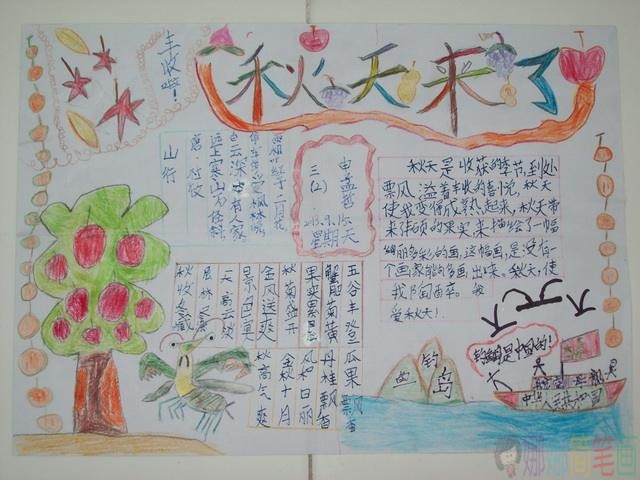 丰收啦!
秋天来了
山行
唐·杜牧
远上寒山石径斜,
白云深处有人家
停车坐爱枫林晚,
霜叶红于二月花
三(2)
星期天
秋天是收获的季节,到处
飘风、溢着丰收的喜悦,秋天
使我变得成熟起来,秋天带
来伟硕的果实,来描绘了一幅
绚丽多彩的画,这幅画,是没有一
个画家能够画出来,秋天,使
我陶西卒。
爱秋天!
五谷丰登 瓜果飘香
蟹肥菊黄 丹桂飘香
果实累累 风和日丽
秋菊盛开 金秋十月
金风送爽 秋高气爽
景色宜
天高云淡
层林尽
秋收冬藏
钓鱼岛是中国的!
钓
鱼
岛
中华人民共和国
娜娜简笔画